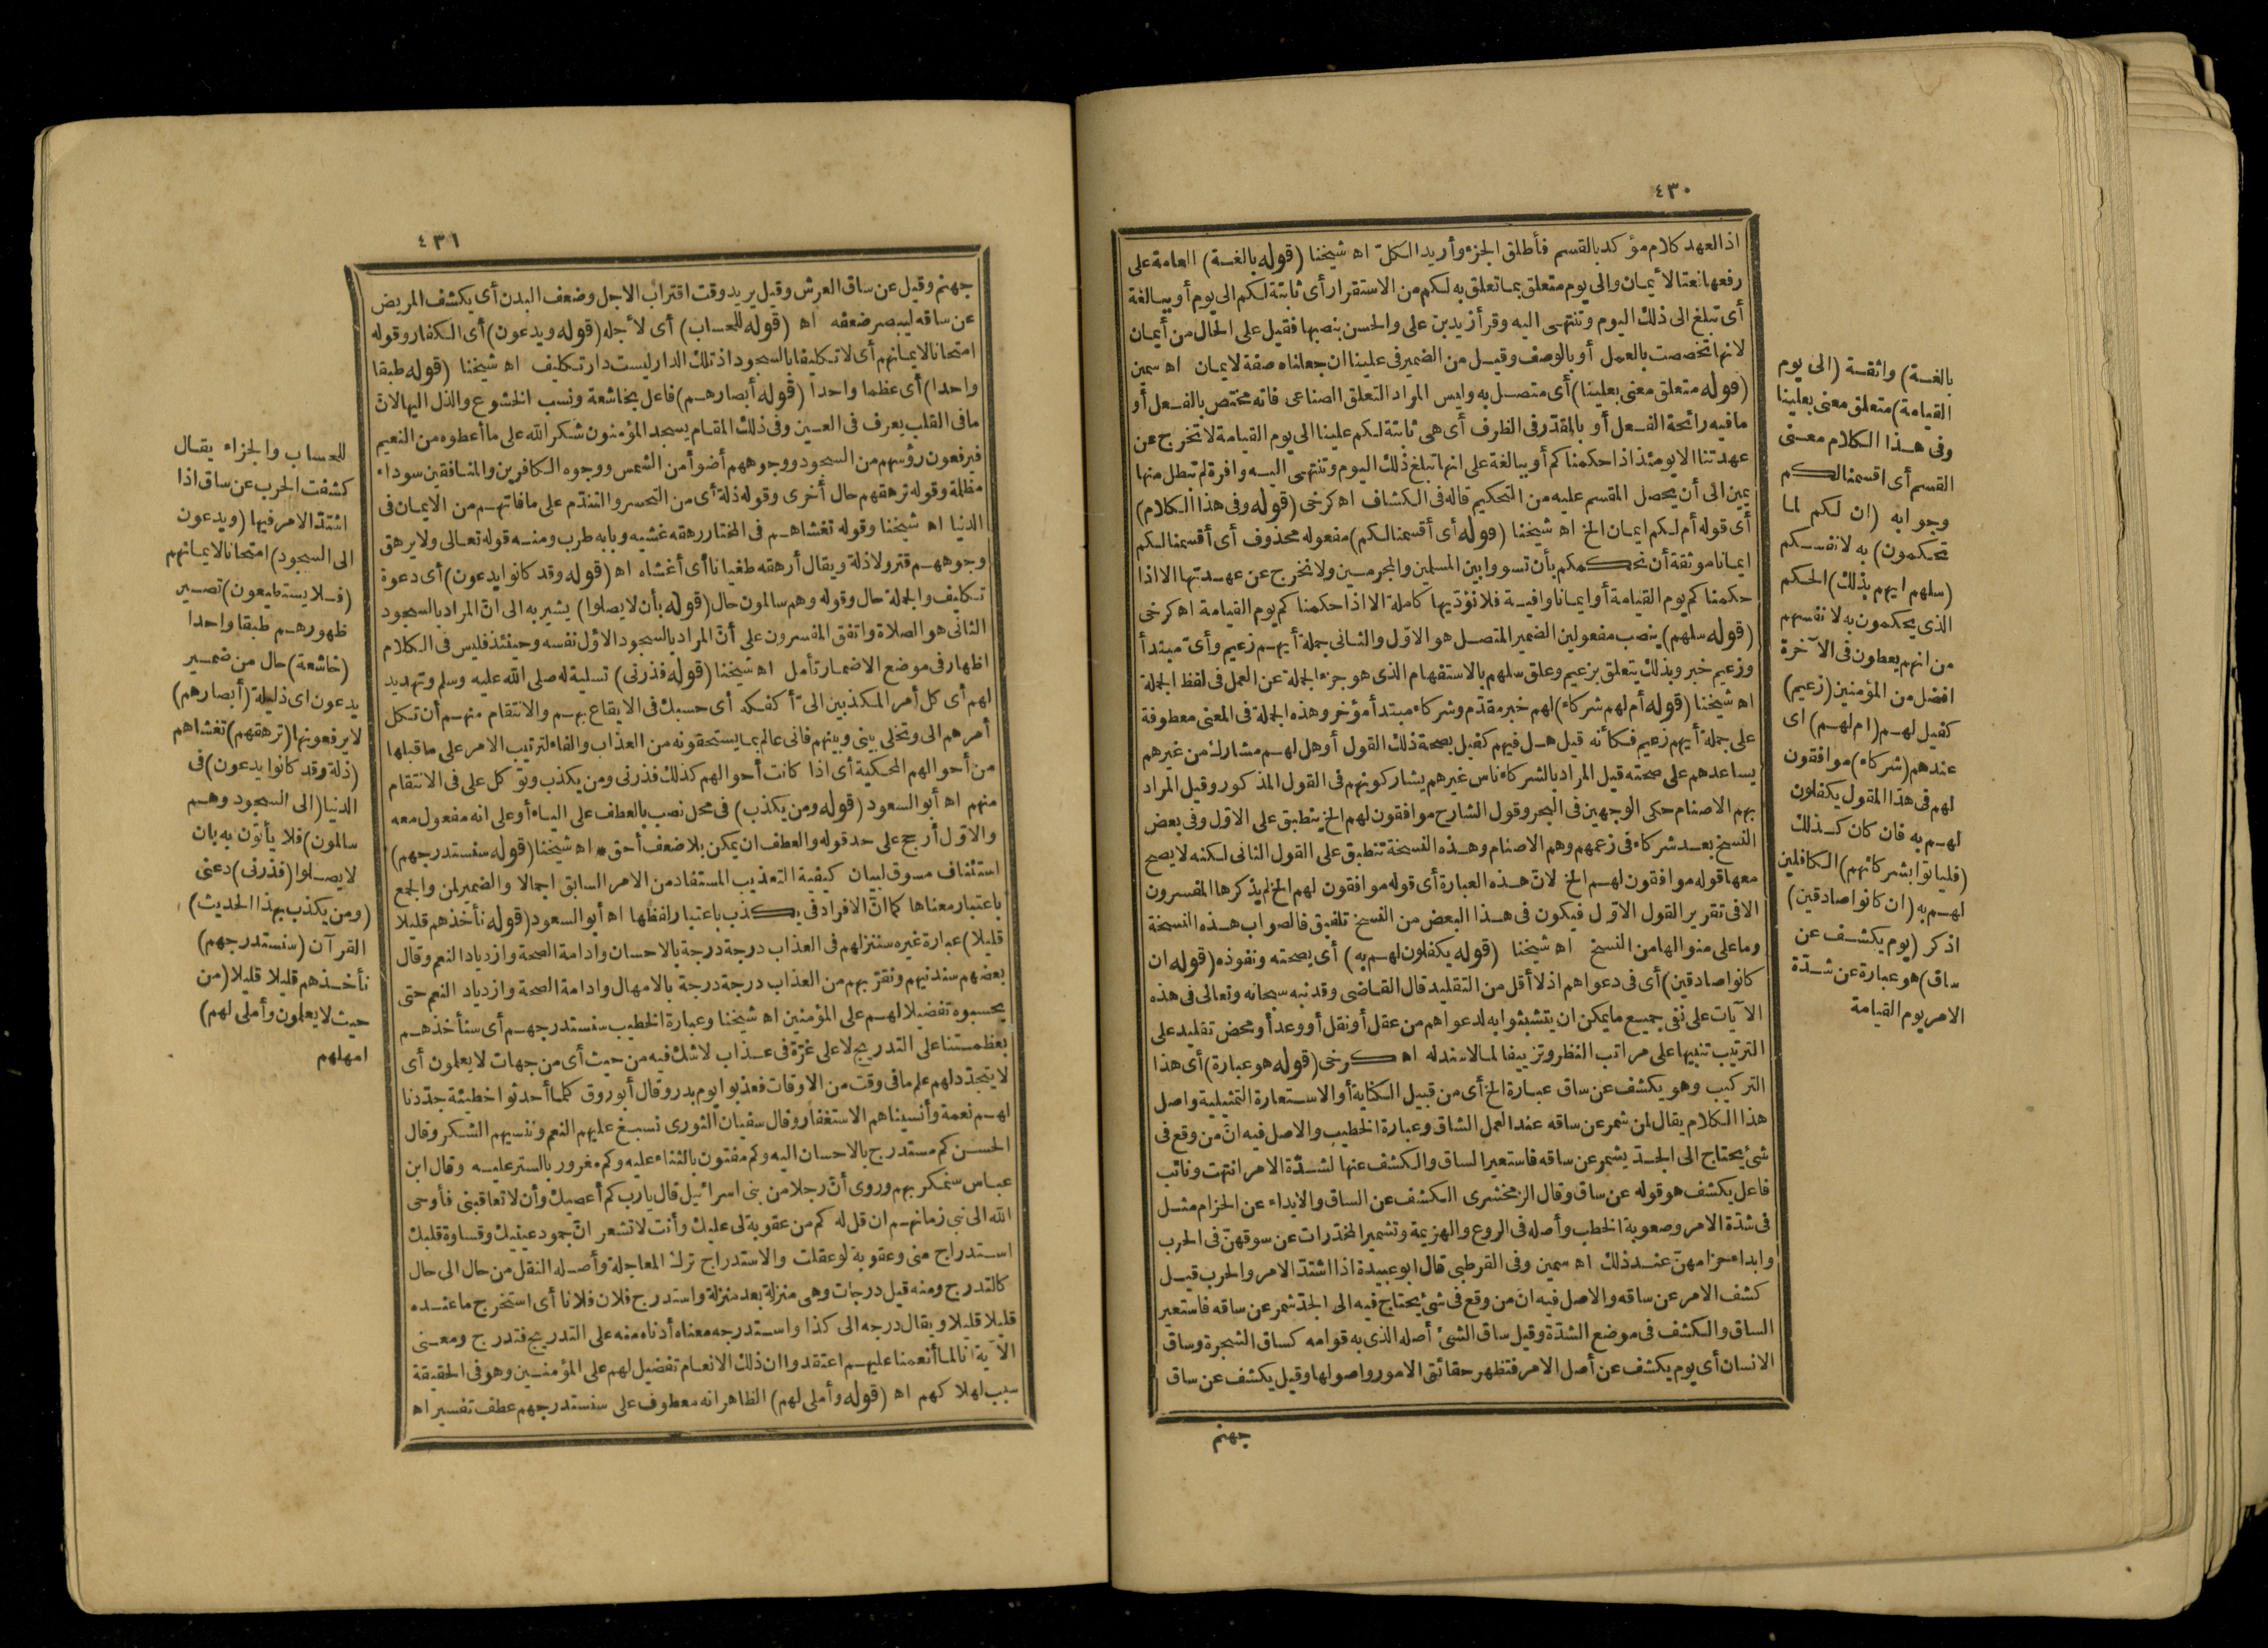 ٤٣٠
اذ العهد كلام مؤكد بالقسم فأطلق الجزء وأريد الكل اه شيخنا (قوله بالغة) العامة على
رفعها نعتا لأيمان والى يوم متعلق بما تعلق به لكم من الاستقرار أى ثابتة لكم الى يوم أو ببالغة
أى تبلغ الى ذلك اليوم وتنتهى اليه وقرأ زيد بن على والحسن بنصبها فقيل على الحال من أيمان
لانها تخصصت بالعمل أو بالوصف وقيل من الضمير فى علينا ان جعلناه صفة لايمان اه سمين
(قوله متعلق معنى بعلينا) أى متصل به وليس المراد التعلق الصناعى فانه مختص بالفعل أو
ما فيه رائحة الفعل أو بالمقدّر فى الظرف أى هى ثابتة لكم علينا الى يوم القيامة لا تخرج عن
عهدتنا الا يومئذ اذا حكمناكم أو ببالغة على انها تبلغ ذلك اليوم وتنتهى اليه وافرة لم تبطل منها
يمين الى أن يحصل المقسم عليه من التحكيم قاله فى الكشاف اه كرخى (قوله وفى هذا الكلام)
أى قوله أم لكم ايمان الخ اه شيخنا (قوله أى أقسمنا لكم) مفعوله محذوف أى أقسمنا لكم
ايمانا موثقة أن نحكمكم بأن تسووا بين المسلمين والمجرمين ولا نخرج عن عهدتها الا اذا
حكمناكم يوم القيامة أو ايمانا وافية فلا نؤدّيها كاملة الا اذا حكمناكم يوم القيامة اه كرخى
(قوله سلهم) ينصب مفعولين الضمير المتصل هو الاوّل والثانى جملة أيهم زعيم وأى مبتدأ
وزعيم خبر وبذلك يتعلق بزعيم وعلق سلهم بالاستفهام الذى هو جزء الجملة عن العمل فى لفظ الجملة
اه شيخنا (قوله أم لهم شركاء) لهم خبر مقدّم وشركاء مبتدأ مؤخر وهذه الجملة فى المعنى معطوفة
على جملة أيهم زعيم فكأنه قيل هل فيهم كفيل بصحة ذلك القول أو هل لهم مشارك من غيرهم
يساعدهم على صحته قيل المراد بالشركاء ناس غيرهم يشاركونهم فى القول المذكور وقيل المراد
بهم الاصنام حكى الوجهين فى البحر وقول الشارح موافقون لهم الخ ينطبق على الاوّل وفى بعض
النسخ بعد شركاء فى زعمهم وهم الاصنام وهذه النسخة تنطبق على القول الثانى لكنه لا يصح
معها قوله موافقون لهم الخ لانّ هذه العبارة أى قوله موافقون لهم الخ لم يذكرها المفسرون
الا فى تقرير القول الاوّل فيكون فى هذا البعض من النسخ تلفيق فالصواب هذه النسخة
وما على منوالها من النسخ اه شيخنا (قوله يكفلون لهم به) أى بصحته ونفوذه (قوله ان
كانوا صادقين) أى فى دعواهم اذ لا أقل من التقليد قال القاضى وقد نبه سبحانه وتعالى فى هذه
الآيات على نفى جميع ما يمكن ان يتشبثوا به لدعواهم من عقل أو نقل أو وعد أو محض تقليد على
الترتيب تنبيها على مراتب النظر وتزييفا لما لا سند له اه كرخى (قوله هو عبارة) أى هذا
التركيب وهو يكشف عن ساق عبارة الخ أى من قبيل الكناية أو الاستعارة التمثيلية واصل
هذا الكلام يقال لمن شمر عن ساقه عند العمل الشاق وعبارة الخطيب والاصل فيه انّ من وقع فى
شئ يحتاج الى الجدّ يشمر عن ساقه فاستعير الساق والكشف عنها لشدّة الامر انتهت ونائب
فاعل يكشف هو قوله عن ساق وقال الزمخشرى الكشف عن الساق والابداء عن الخزام مثل
فى شدّة الامر وصعوبة الخطب وأصله فى الروع والهزيمة وتشمير المخدّرات عن سوقهنّ فى الحرب
وابداء خزامهنّ عند ذلك اه سمين وفى القرطبى قال ابو عبيدة اذا اشتدّ الامر والحرب قيل
كشف الامر عن ساقه والاصل فيه انّ من وقع فى شئ يحتاج فيه الى الجدّ شمر عن ساقه فاستعير
الساق والكشف فى موضع الشدّة وقيل ساق الشئ أصله الذى به قوامه كساق الشجرة وساق
الانسان أى يوم يكشف عن أصل الامر فتظهر حقائق الامور واصولها وقيل يكشف عن ساق
جهنم
بالغة) واثقة (الى يوم
القيامة) متعلق معنى بعلينا
وفى هذا الكلام معنى
القسم أى اقسمنا لكم
وجوابه (ان لكم لما
تحكمون) به لانفسكم
(سلهم ايهم بذلك) الحكم
الذى يحكمون به لانفسهم
من انهم يعطون فى الآخرة
افضل من المؤمنين (زعيم)
كفيل لهم (ام لهم) اى
عندهم (شركاء) موافقون
لهم فى هذا المقول يكفلون
لهم به فان كان كذلك
(فلياتوا بشركائهم) الكافلين
لهم به (ان كانوا صادقين)
اذكر (يوم يكشف عن
ساق) هو عبارة عن شدّة
الامر يوم القيامة
٤٣١
جهنم وقيل عن ساق العرش وقيل يريد وقت اقتراب الاجل وضعف البدن أى يكشف المريض
عن ساقه ليبصر ضعفه اه (قوله للحساب) أى لأجله (قوله ويدعون) أى الكفار وقوله
امتحانا لايمانهم أى لا تكليفا بالسجود اذ تلك الدار ليست دار تكليف اه شيخنا (قوله طبقا
واحدا) أى عظما واحدا (قوله أبصارهم) فاعل بخاشعة ونسب الخشوع والذل اليها لانّ
ما فى القلب يعرف فى العين وفى ذلك المقام يسجد المؤمنون شكر الله على ما أعطوه من النعيم
فيرفعون رؤسهم من السجود ووجوههم أضوأ من الشمس ووجوه الكافرين والمنافقين سوداء
مظلمة وقوله ترهقهم حال أخرى وقوله ذلة أى من التحسر والتندّم على ما فاتهم من الايمان فى
الدنيا اه شيخنا وقوله تغشاهم فى المختار رهقه غشيه وبابه طرب ومنه قوله تعالى ولا يرهق
وجوههم قتر ولا ذلة ويقال أرهقه طغيانا أى أغشاه اه (قوله وقد كانوا يدعون) أى دعوة
تكليف والجملة حال وقوله وهم سالمون حال (قوله بأن لا يصلوا) يشير به الى انّ المراد بالسجود
الثانى هو الصلاة واتفق المفسرون على أنّ المراد بالسجود الاوّل نفسه وحينئذ فليس فى الكلام
اظهار فى موضع الاضمار تأمل اه شيخنا (قوله فذرنى) تسلية له صلى الله عليه وسلم وتهديد
لهم أى كل أمر المكذبين الىّ أكفكه أى حسبك فى الايقاع بهم والانتقام منهم أن تكل
أمرهم الى وتخلى بينى وبينهم فانى عالم بما يستحقونه من العذاب والفاء لترتيب الامر على ما قبلها
من أحوالهم المحكية أى اذا كانت أحوالهم كذلك فذرنى ومن يكذب وتوكل على فى الانتقام
منهم اه أبو السعود (قوله ومن يكذب) فى محل نصب بالعطف على الياء أو على انه مفعول معه
والاوّل أرجح على حد قوله والعطف ان يمكن بلا ضعف أحق * اه شيخنا (قوله سنستدرجهم)
استئناف مسوق لبيان كيفية التعذيب المستفاد من الامر السابق اجمالا والضمير لمن والجمع
باعتبار معناها كما انّ الافراد فى يكذب باعتبار لفظها اه أبو السعود (قوله نأخذهم قليلا
قليلا) عبارة غيره سننزلهم فى العذاب درجة درجة بالاحسان وادامة الصحة وازدياد النعم وقال
بعضهم سندنيهم ونقرّبهم من العذاب درجة درجة بالامهال وادامة الصحة وازدياد النعم حتى
يحسبوه تفضيلا لهم على المؤمنين اه شيخنا وعبارة الخطيب سنستدرجهم أى سنأخذهم
بعظمتنا على التدريج لا على غرّة فى عذاب لا شك فيه من حيث أى من جهات لا يعلمون أى
لا يتجدّد لهم علم ما فى وقت من الاوقات فعذبوا يوم بدر وقال أبو روق كلما أحدثوا خطيئة جدّدنا
لهم نعمة وأنسيناهم الاستغفار وقال سفيان الثورى نسبغ عليهم النعم وننسيهم الشكر وقال
الحسن كم مستدرج بالاحسان اليه وكم مفتون بالثناء عليه وكم مغرور بالستر عليه وقال ابن
عباس سنمكر بهم وروى أنّ رجلا من بنى اسرائيل قال يارب كم أعصيك وأن لا تعاقبنى فأوحى
الله الى نبى زمانهم ان قل له كم من عقوبة لى عليك وأنت لا تشعر انّ جمود عينيك وقساوة قلبك
استدراج منى وعقوبة لو عقلت والاستدراج ترك المعاجلة وأصله النقل من حال الى حال
كالتدرج ومنه قيل درجات وهى منزلة بعد منزلة واستدرج فلان فلانا أى استخرج ما عنده
قليلا قليلا ويقال درجه الى كذا واستدرجه معناه أدناه منه على التدريج فتدرج ومعنى
الآية انا لما أنعمنا عليهم اعتقدوا ان ذلك الانعام تفضيل لهم على المؤمنين وهو فى الحقيقة
سبب لهلاكهم اه (قوله وأملى لهم) الظاهر انه معطوف على سنستدرجهم عطف تفسير اه
للحساب والجزاء يقال
كشفت الحرب عن ساق اذا
اشتدّ الامر فيها (ويدعون
الى السجود) امتحانا لايمانهم
(فلا يستطيعون) تصير
ظهورهم طبقا واحدا
(خاشعة) حال من ضمير
يدعون اى ذليلة (أبصارهم)
لا يرفعونها (ترهقهم) تغشاهم
(ذلة وقد كانوا يدعون) فى
الدنيا (الى السجود وهم
سالمون) فلا يأتون به بان
لا يصلوا (فذرنى) دعنى
(ومن يكذب بهذا الحديث)
القرآن (سنستدرجهم)
نأخذهم قليلا قليلا (من
حيث لا يعلمون وأملى لهم)
امهلهم